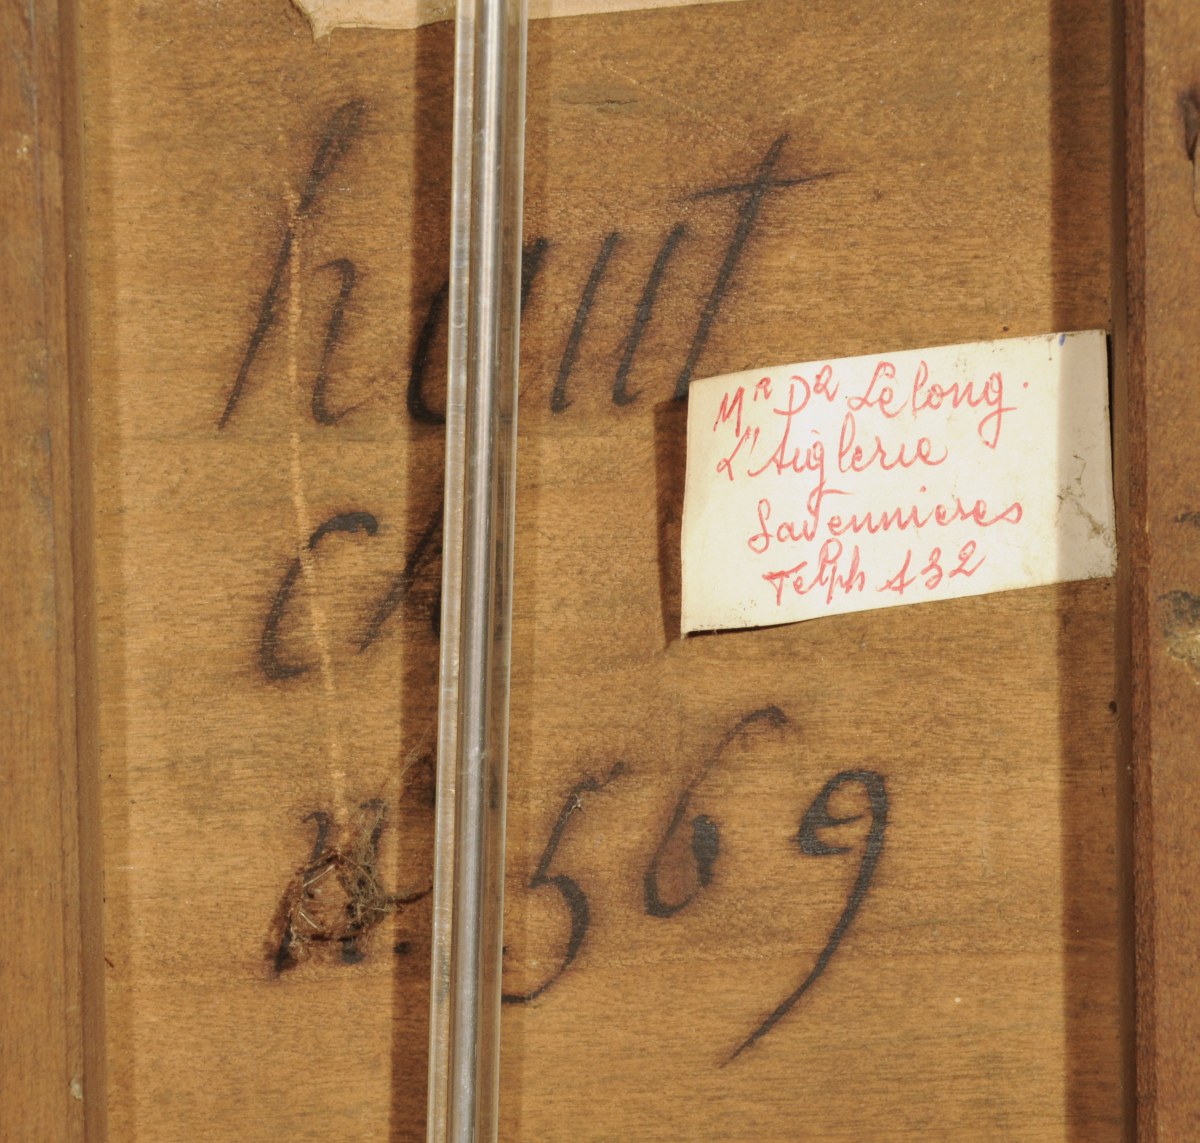 haut
ch
n° 569
Mr Dl Lelong.
L'Aiglerie
Savennieres
Telph 132